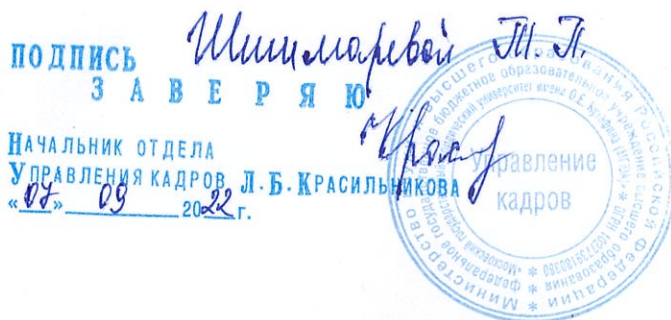 ПОДПИСЬ Шишмаревой Т. П.
ЗАВЕРЯЮ
НАЧАЛЬНИК ОТДЕЛА
УПРАВЛЕНИЯ КАДРОВ Л.Б. КРАСИЛЬНИКОВА
«07» 09 2022 г.
Министерство высшего образования Российской Федерации *
Федеральное государственное бюджетное образовательное учреждение высшего образования *
«Московский государственный юридический университет имени О.Е. Кутафина (МГЮА)» * ОГРН 1027739180380 *
Управление
кадров